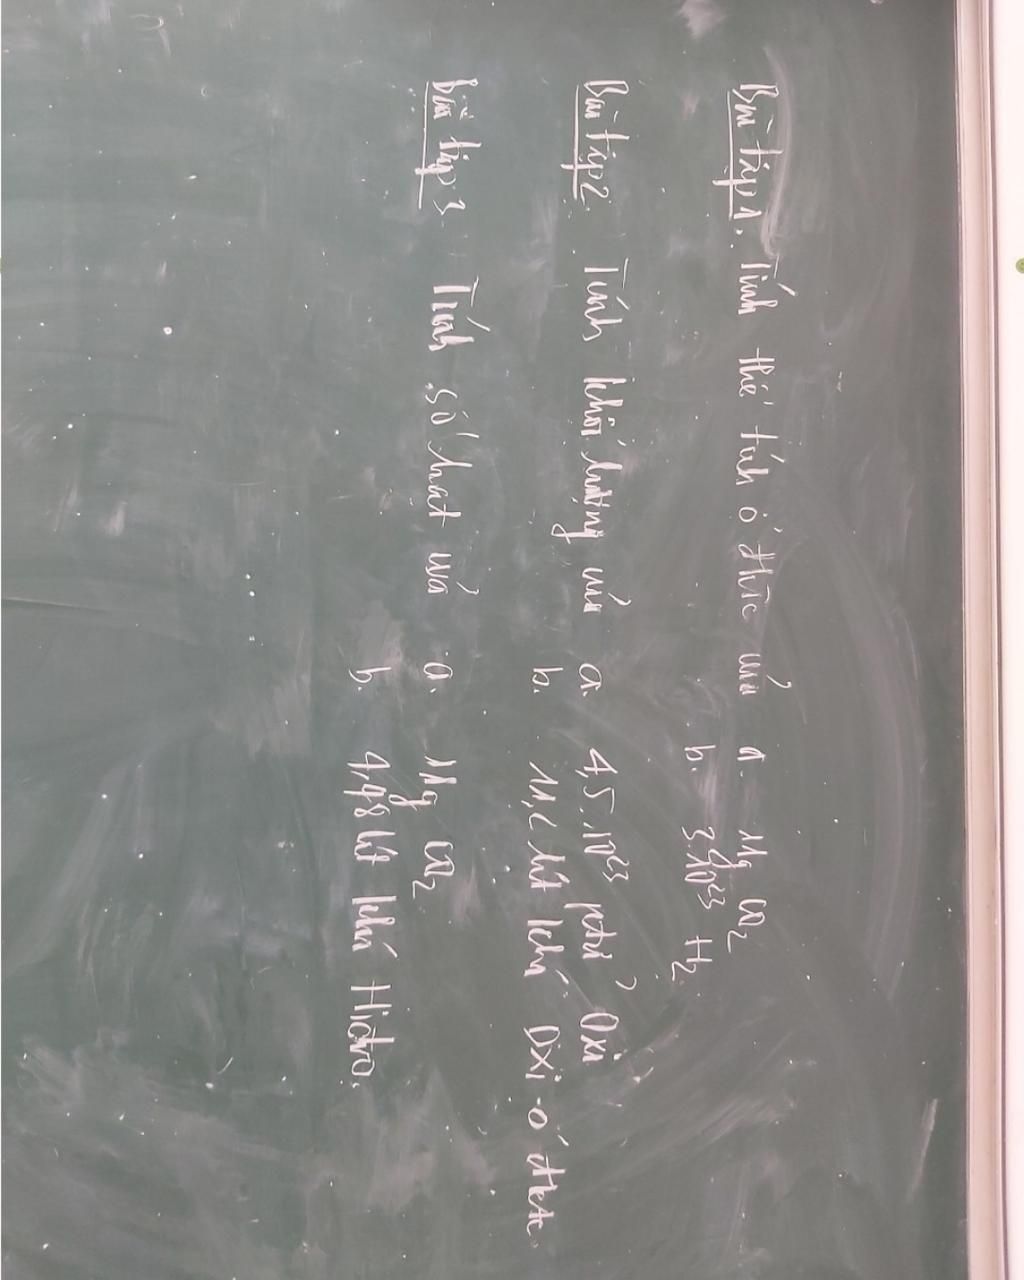 Bài tập 1. Tính thể tích ở đktc của a. 11g CO2
b. 3.10²³ H2.
Bài tập 2. Tính khối lượng của a. 4,5.10²³ ptử Oxi
b. 11,2 lít khí Oxi ở đktc
Bài tập 3. Tính số hạt của a. 11g CO2
b. 4,48 lít khí Hiđro.